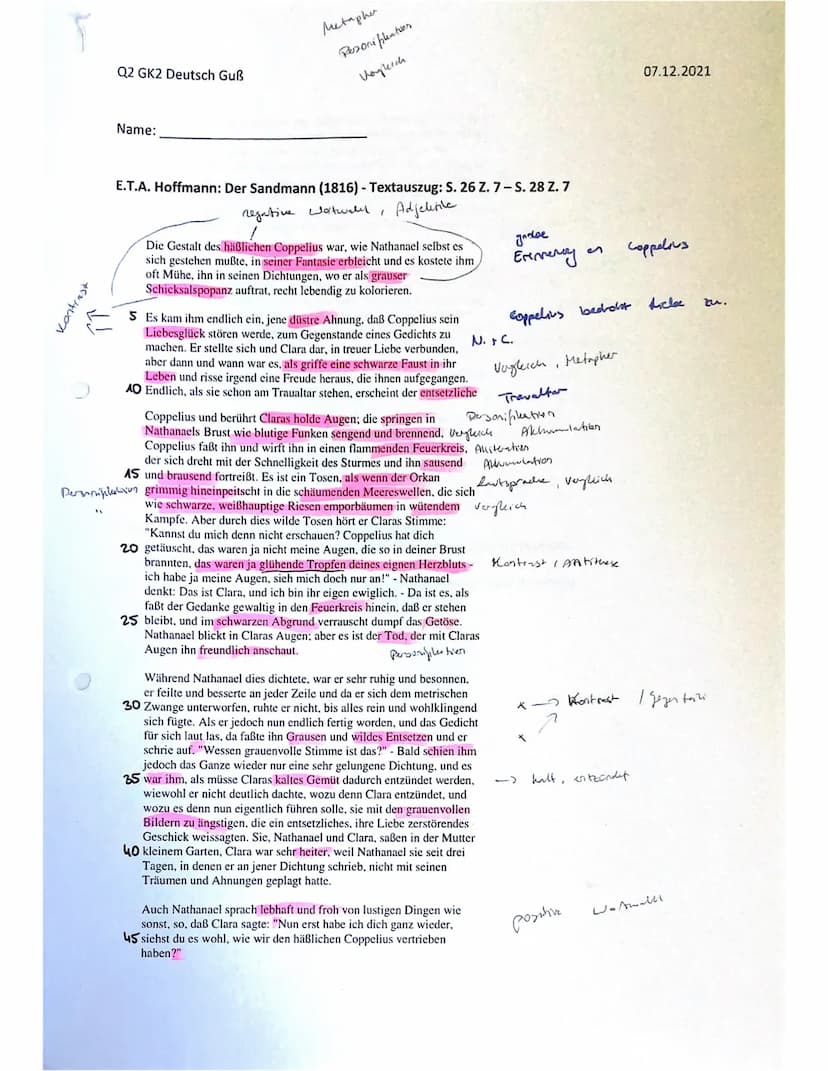 Metapher
Personifikation
Vergleich
Q2 GK2 Deutsch Guß 07.12.2021
Name:
E.T.A. Hoffmann: Der Sandmann (1816) - Textauszug: S. 26 Z. 7 – S. 28 Z. 7
negative Wortwahl, Adjektive
Die Gestalt des häßlichen Coppelius war, wie Nathanael selbst es
sich gestehen mußte, in seiner Fantasie erbleicht und es kostete ihm
oft Mühe, ihn in seinen Dichtungen, wo er als grauser
Schicksalspopanz auftrat, recht lebendig zu kolorieren.
Erinnerung an Coppelius
Kontrast
5 Es kam ihm endlich ein, jene düstre Ahnung, daß Coppelius sein
Liebesglück stören werde, zum Gegenstande eines Gedichts zu
machen. Er stellte sich und Clara dar, in treuer Liebe verbunden,
aber dann und wann war es, als griffe eine schwarze Faust in ihr
Leben und risse irgend eine Freude heraus, die ihnen aufgegangen.
10 Endlich, als sie schon am Traualtar stehen, erscheint der entsetzliche
Coppelius bedroht Liebe zw.
N. + C.
Vergleich, Metapher
Traualtar
Coppelius und berührt Claras holde Augen; die springen in
Nathanaels Brust wie blutige Funken sengend und brennend,
Coppelius faßt ihn und wirft ihn in einen flammenden Feuerkreis,
der sich dreht mit der Schnelligkeit des Sturmes und ihn sausend
15 und brausend fortreißt. Es ist ein Tosen, als wenn der Orkan
grimmig hineinpeitscht in die schäumenden Meereswellen, die sich
wie schwarze, weißhauptige Riesen emporbäumen in wütendem
Kampfe. Aber durch dies wilde Tosen hört er Claras Stimme:
"Kannst du mich denn nicht erschauen? Coppelius hat dich
20 getäuscht, das waren ja nicht meine Augen, die so in deiner Brust
brannten, das waren ja glühende Tropfen deines eignen Herzbluts -
ich habe ja meine Augen, sieh mich doch nur an!" - Nathanael
denkt: Das ist Clara, und ich bin ihr eigen ewiglich. - Da ist es, als
faßt der Gedanke gewaltig in den Feuerkreis hinein, daß er stehen
25 bleibt, und im schwarzen Abgrund verrauscht dumpf das Getöse.
Nathanael blickt in Claras Augen; aber es ist der Tod, der mit Claras
Augen ihn freundlich anschaut.
Personifikation
Vergleich Akkumulation
Alliteration
Akkumulation
Lautsprache, Vergleich
Personifikation
"
Vergleich
Kontrast / Antithese
Personifikation
Während Nathanael dies dichtete, war er sehr ruhig und besonnen,
er feilte und besserte an jeder Zeile und da er sich dem metrischen
30 Zwange unterworfen, ruhte er nicht, bis alles rein und wohlklingend
sich fügte. Als er jedoch nun endlich fertig worden, und das Gedicht
für sich laut las, da faßte ihn Grausen und wildes Entsetzen und er
schrie auf. "Wessen grauenvolle Stimme ist das?" - Bald schien ihm
jedoch das Ganze wieder nur eine sehr gelungene Dichtung, und es
35 war ihm, als müsse Claras kaltes Gemüt dadurch entzündet werden,
wiewohl er nicht deutlich dachte, wozu denn Clara entzündet, und
wozu es denn nun eigentlich führen solle, sie mit den grauenvollen
Bildern zu ängstigen, die ein entsetzliches, ihre Liebe zerstörendes
Geschick weissagten. Sie, Nathanael und Clara, saßen in der Mutter
40 kleinem Garten, Clara war sehr heiter, weil Nathanael sie seit drei
Tagen, in denen er an jener Dichtung schrieb, nicht mit seinen
Träumen und Ahnungen geplagt hatte.
x → Kontrast /
x
→ kalt, entzündet
Auch Nathanael sprach lebhaft und froh von lustigen Dingen wie
sonst, so, daß Clara sagte: "Nun erst habe ich dich ganz wieder,
45 siehst du es wohl, wie wir den häßlichen Coppelius vertrieben
haben?"
positive Wortwahl